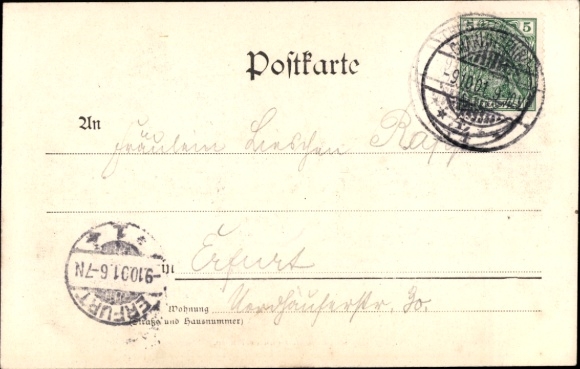 5
Postkarte
9.10.01.
An Fräulein Lieschen Rapp
9.10.01.6-7N
ERFURT
in Erfurt
Wohnung Nordhäuserstr. 30.
(Straße und Hausnummer)